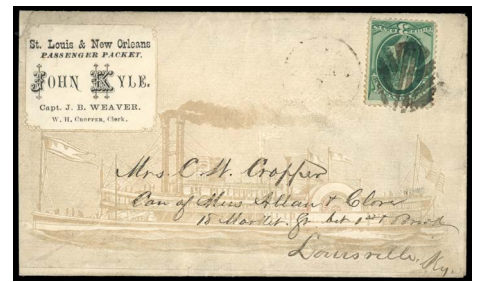 St. Louis & New Orleans
PASSENGER PACKET,
JOHN KYLE.
Capt. J. B. WEAVER.
W. H. CROPPER, Clerk.
Mrs. C. W. Cropper
Care of Miss Allan & Clore
Louisville, Ky.